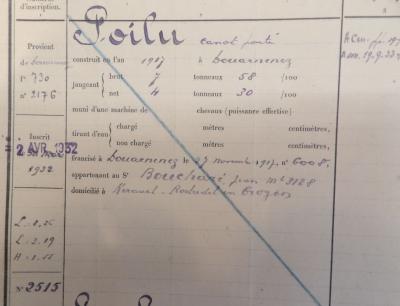 d'inscription.
Poilu canot ponté
Provient
de Douarnenez
n° 730
n° 2176
construit en l'an 1917 à Douarnenez
jaugeant brut 7 tonneaux 58 /100
net 4 tonneaux 30 /100
muni d'une machine de chevaux (puissance effective).
tirant d'eau chargé mètres centimètres,
non chargé mètres centimètres,
Inscrit
= 2 AVR. 1932
1932
francisé à Douarnenez le 27 novembre 1917, n° 6008.
appartenant au Sr Jean Mle 3128
domicilié à Rostudel en Crozon
L = 8.25
L = 2.19
H = 1.11
N° 2515